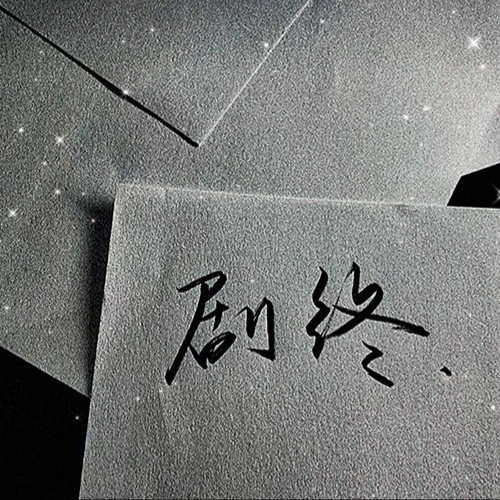 剧终.